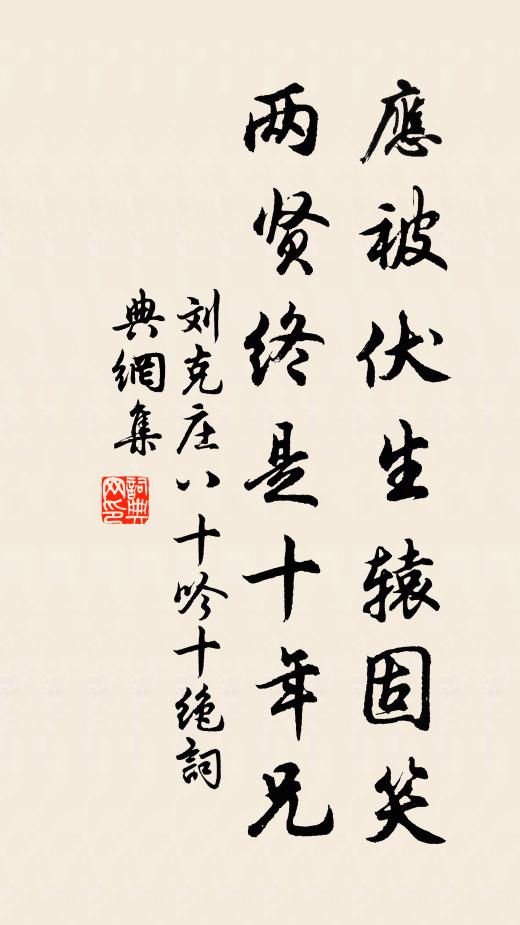 應被伏生辕固笑
两贤终是十年兄
刘克庄八十吟十绝詞
典網集
詞典网印